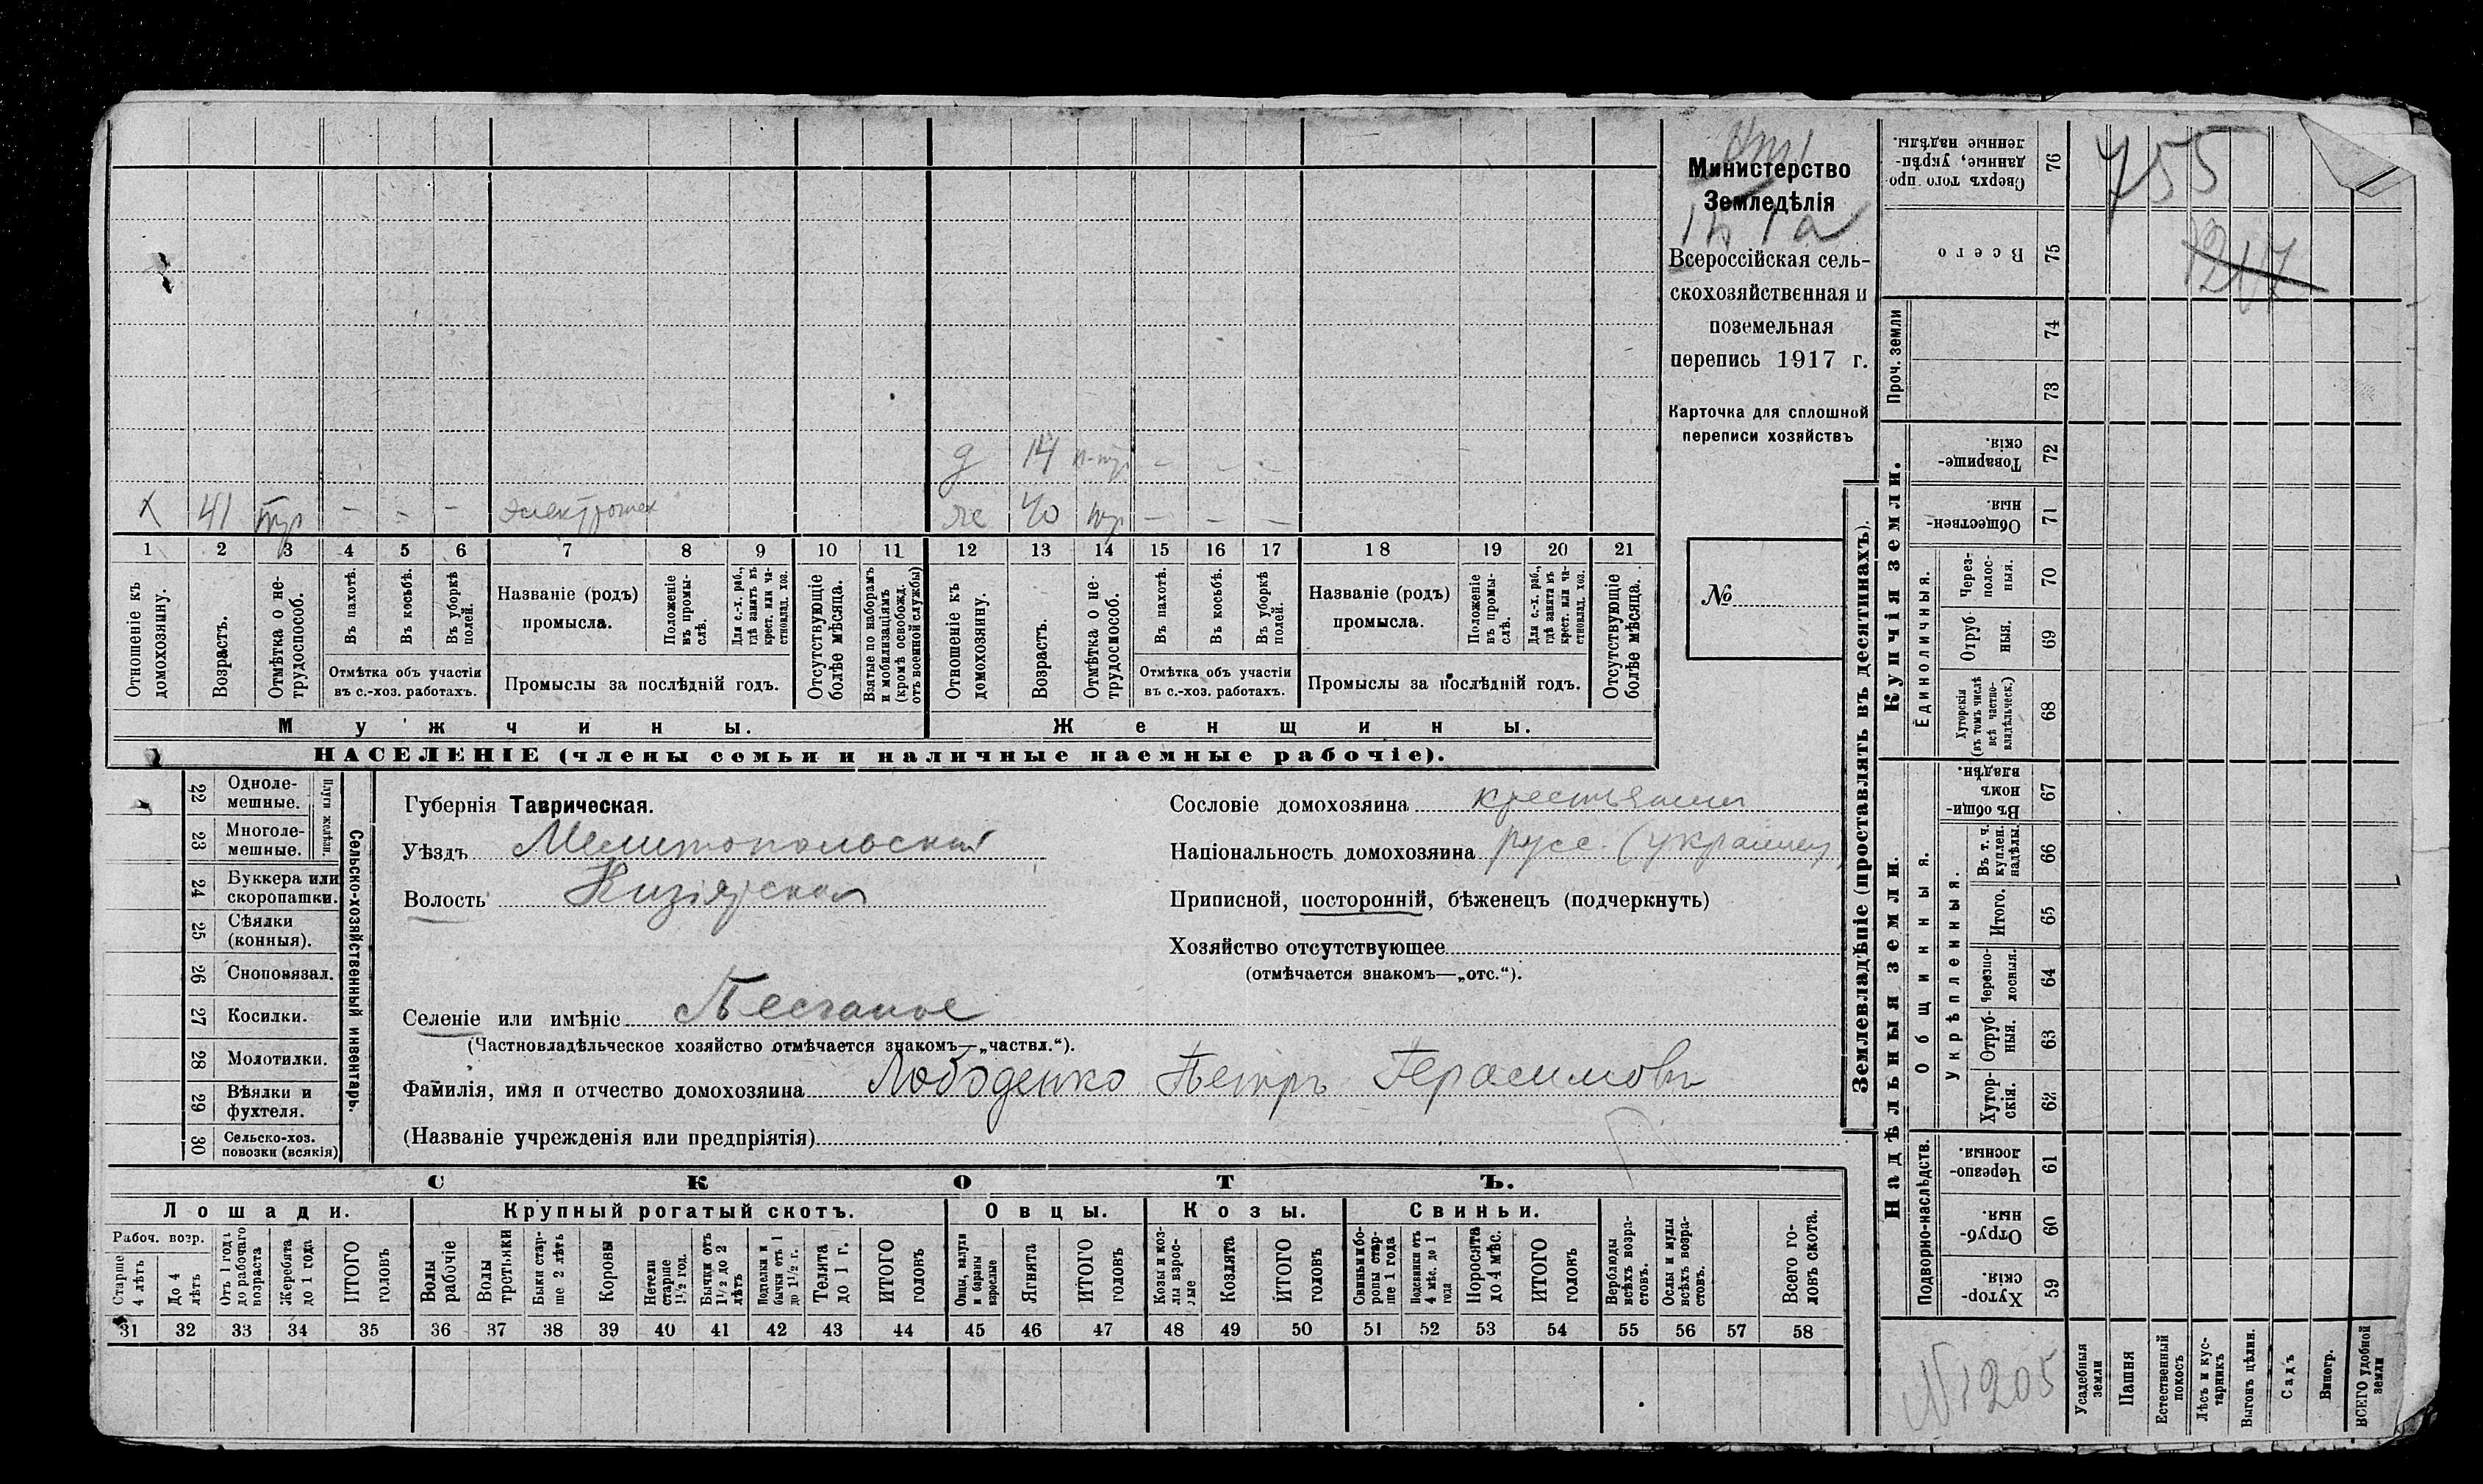 Министерство
Земледѣлія
Всероссійская сель-
скохозяйственная и
поземельная
перепись 1917 г.
Карточка для сплошной
переписи хозяйствъ
№
д 14 – – –
х 41 тр – – – электротех
ж 40 тр – – –
1 2 3 4 5 6 7 8 9 10 11 12 13 14 15 16 17 18 19 20 21
Отношеніе къ домохозяину.
Возрастъ.
Отмѣтка о не-трудоспособ.
Въ пахотѣ.
Въ косьбѣ.
Въ уборкѣ полей.
Отмѣтка объ участіи
въ с.-хоз. работахъ.
Названіе (родъ)
промысла.
Положеніе въ промы-слѣ.
Для с.-х. раб., гдѣ занятъ въ крест. или ча-стновлад. хоз.
Промыслы за послѣдній годъ.
Отсутствующіе болѣе мѣсяца.
Взятые по наборамъ и мобилизаціямъ (кромѣ освобожд. отъ военной службы)
Отношеніе къ домохозяину.
Возрастъ.
Отмѣтка о не-трудоспособ.
Въ пахотѣ.
Въ косьбѣ.
Въ уборкѣ полей.
Отмѣтка объ участіи
въ с.-хоз. работахъ.
Названіе (родъ)
промысла.
Положеніе въ промы-слѣ.
Для с.-х. раб., гдѣ занята въ крест. или ча-стновлад. хоз.
Промыслы за послѣдній годъ.
Отсутствующіе болѣе мѣсяца.
Мужчины. Женщины.
НАСЕЛЕНІЕ (члены семьи и наличные наемные рабочіе).
22 Одноле-мешные.
23 Многоле-мешные.
Плуги желѣзн.
24 Буккера или скоропашки.
25 Сѣялки (конныя).
26 Сноповязал.
27 Косилки.
28 Молотилки.
29 Вѣялки и фухтеля.
30 Сельско-хоз. повозки (всякія)
Сельско-хозяйственный инвентарь.
Губернія Таврическая.
Уѣздъ Мелитопольскій
Волость Кизіярская
Селеніе или имѣніе Песчаное
(Частновладѣльческое хозяйство отмѣчается знакомъ—„частвл.“).
Фамилія, имя и отчество домохозяина Лободенко Петръ Герасимовъ
(Названіе учрежденія или предпріятія)
Сословіе домохозяина крестьянин
Національность домохозяина русс. (украинец)
Приписной, посторонній, бѣженецъ (подчеркнуть)
Хозяйство отсутствующее
(отмѣчается знакомъ—„отс.“).
СКОТЪ.
Лошади. Крупный рогатый скотъ. Овцы. Козы. Свиньи.
Рабоч. возр.
Старше 4 лѣтъ
До 4 лѣтъ
Отъ 1 года до рабочаго возраста
Жеребята до 1 года
ИТОГО головъ
Волы рабочіе
Волы третьяки
Быки стар-ше 2 лѣтъ
Коровы
Нетели старше 1½ год.
Бычки отъ 1½ до 2 лѣтъ
Подтелки и бычки отъ 1 до 1½ г.
Телята до 1 г.
ИТОГО головъ
Овцы, валухи и бараны взрослые
Ягнята
ИТОГО головъ
Козы и коз-лы взрос-лые
Козлята
ИТОГО головъ
Свиньи и бо-ровы стар-ше 1 года
Подсвинки отъ 4 мѣс. до 1 года
Поросята до 4 мѣс.
ИТОГО головъ
Верблюды всѣхъ возра-стовъ.
Ослы и мулы всѣхъ возра-стовъ.
Всего го-ловъ скота.
31 32 33 34 35 36 37 38 39 40 41 42 43 44 45 46 47 48 49 50 51 52 53 54 55 56 57 58
Землевладѣніе (проставлять въ десятинахъ).
Надѣльныя земли.
Купчія земли.
Проч. земли
Подворно-наслѣдств.
Общинныя.
Укрѣпленныя.
Единоличныя.
76 Сверхъ того про-данные, укрѣп-ленные надѣлы.
75 Всего
74
73
72 Товарище-скія.
71 Обществен-ныя.
70 Через-полос-ныя.
69 Отруб-ныя.
68 Хуторскія (въ томъ числѣ всѣ частно-владѣльческ.)
67 Въ общин-номъ владѣн.
66 Въ т. ч. куплен. надѣлы.
65 Итого.
64 Черезпо-лосныя.
63 Отруб-ныя.
62 Хутор-скія.
61 Черезпо-лосныя.
60 Отруб-ныя.
59 Хутор-скія.
Усадебныя земли
Пашня
Естественный покосъ
Лѣсъ и кус-тарникъ
Выгонъ цѣлин.
Садъ
Виногр.
ВСЕГО удобной земли
755
1217
№1205